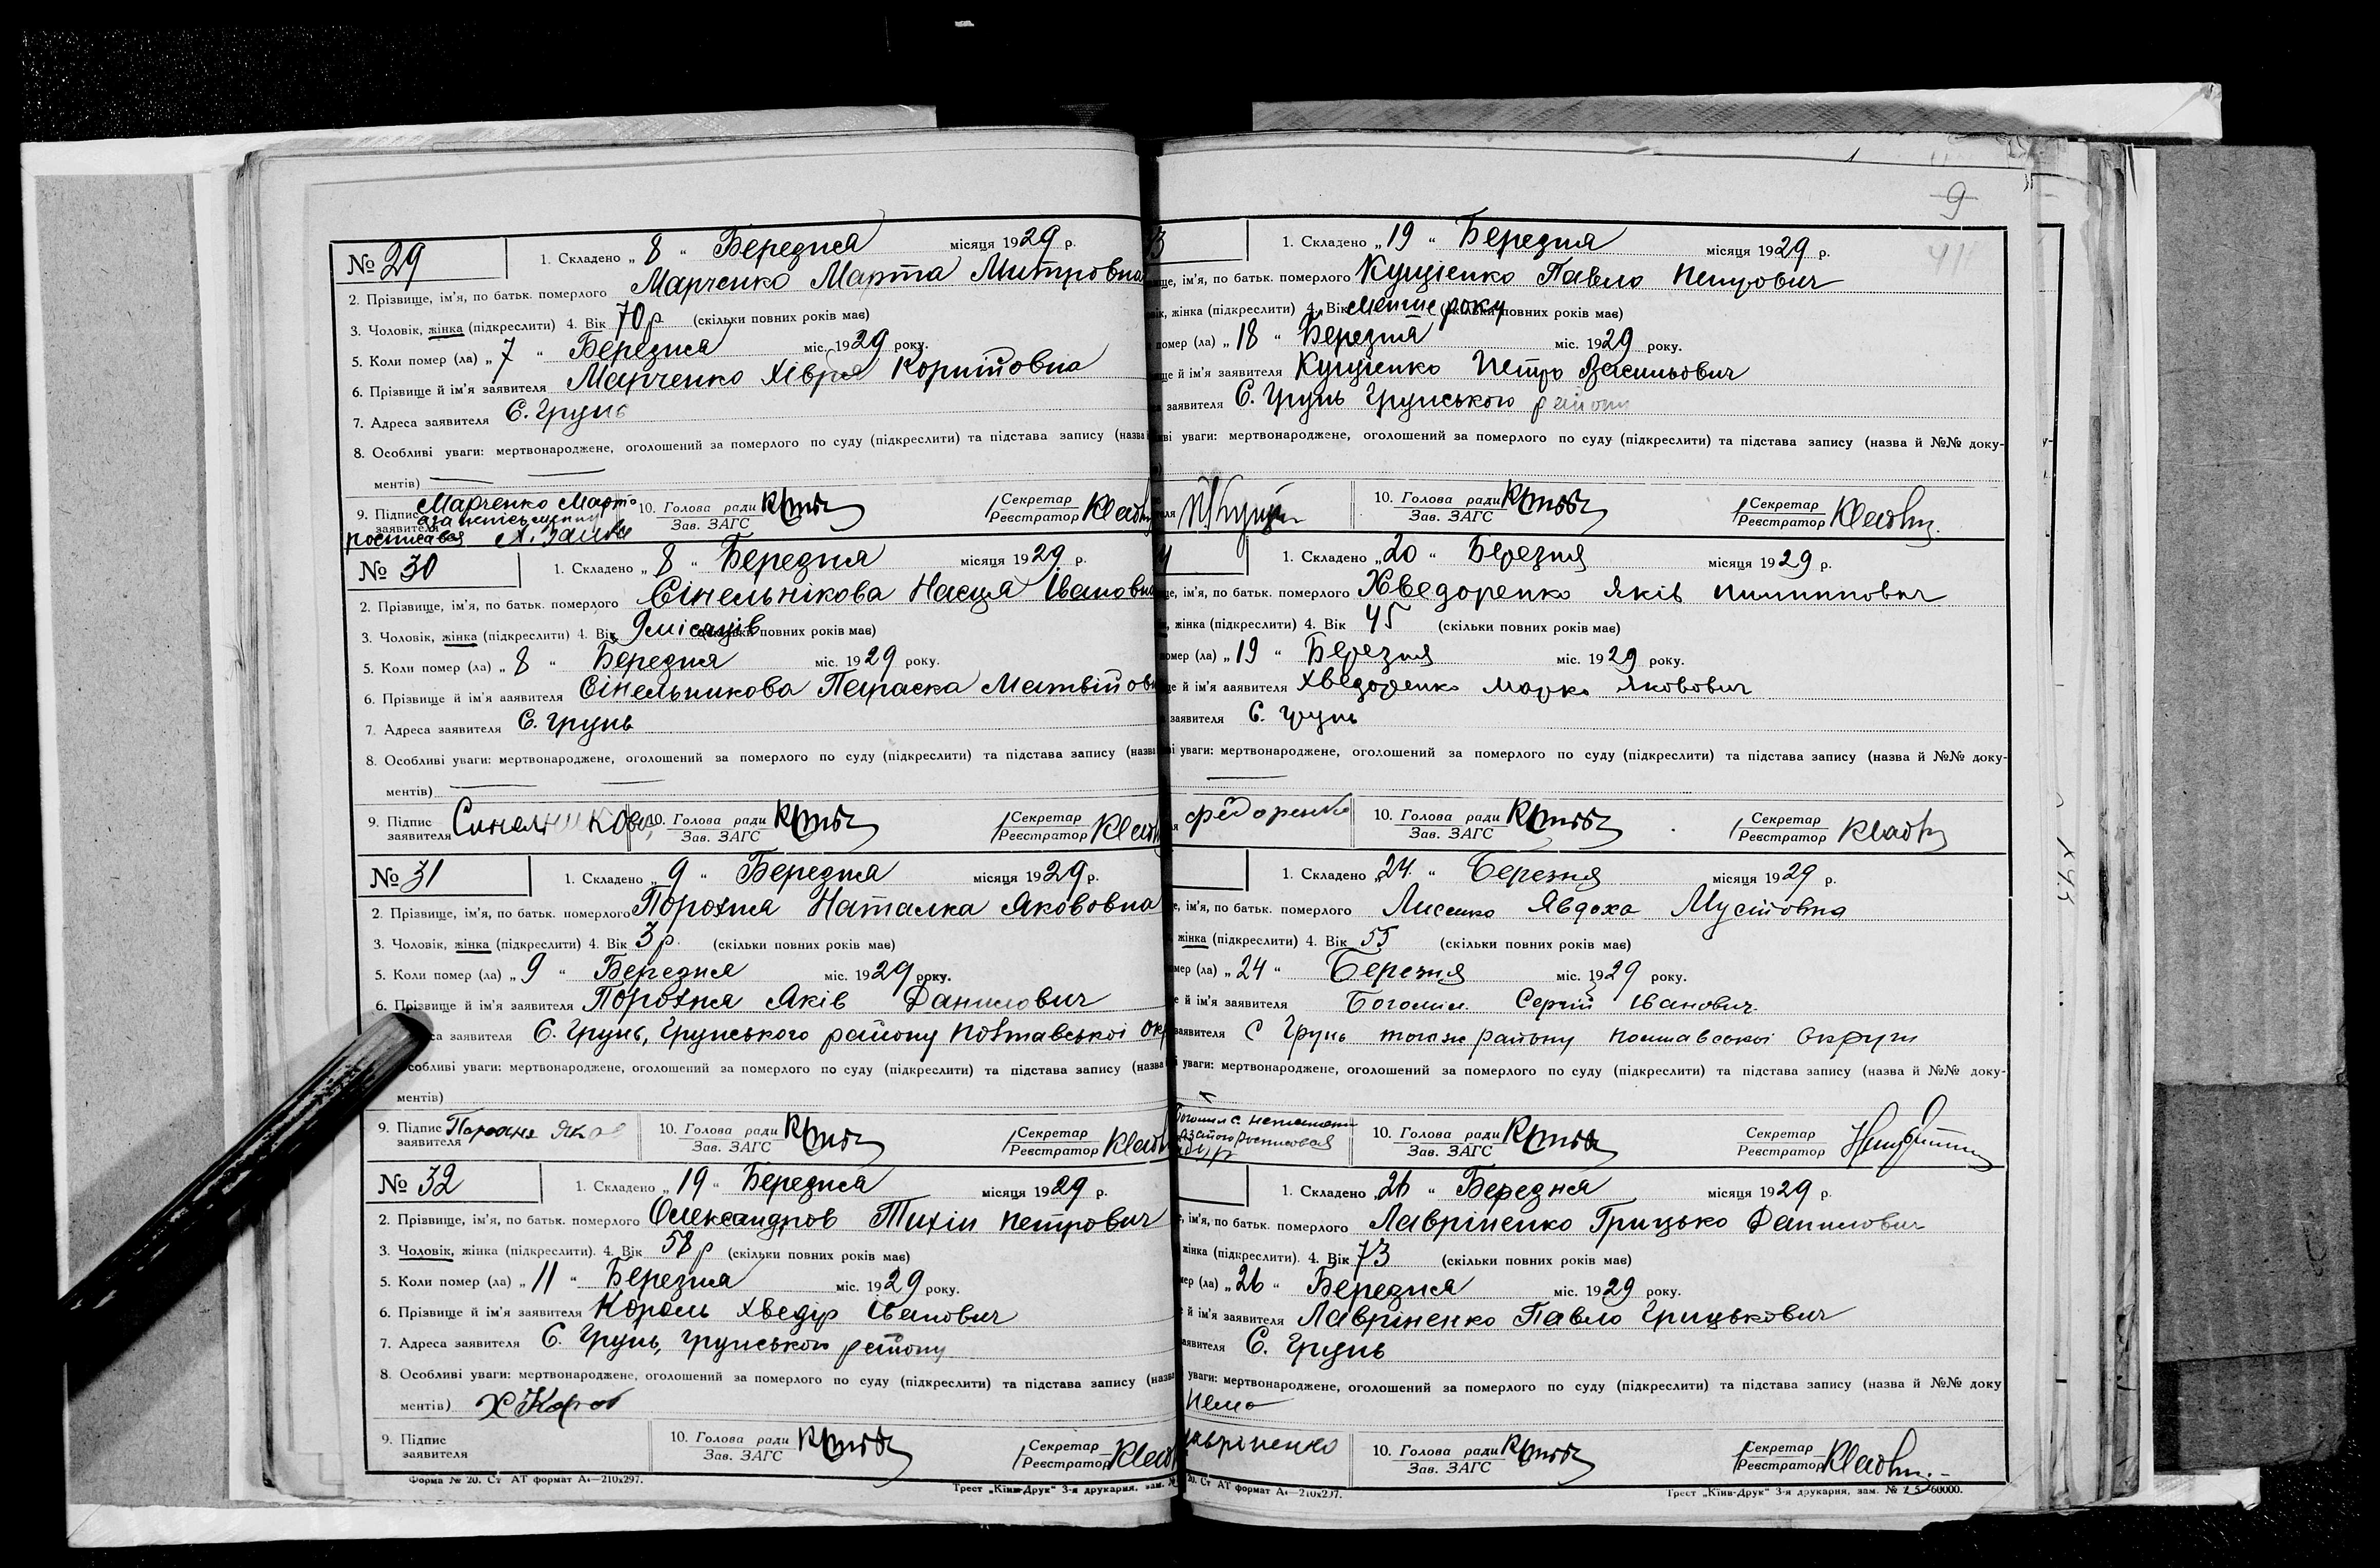 № 29
1. Складено „ 8 “ Березня місяця 1929 р.
2. Прізвище, ім'я, по батьк. померлого Марченко Марта Митровна
3. Чоловік, жінка (підкреслити) 4. Вік 70 р (скільки повних років має)
5. Коли помер (ла) „ 7 “ Березня міс. 1929 року.
6. Прізвище й ім'я заявителя Марченко Хівря Корнійовна
7. Адреса заявителя С. Грунь
8. Особливі уваги: мертвонароджене, оголошений за померлого по суду (підкреслити) та підстава запису (назва
ментів)
9. Підпис заявителя Марченко Марта
росписався
10. Голова ради
Зав. ЗАГС
Секретар
Реєстратор
№ 30
1. Складено „ 8 “ Березня місяця 1929 р.
2. Прізвище, ім'я, по батьк. померлого Сінельнікова Насця Івановна
3. Чоловік, жінка (підкреслити) 4. Вік 9 місяців (скільки повних років має)
5. Коли помер (ла) „ 8 “ Березня міс. 1929 року.
6. Прізвище й ім'я заявителя Сінельникова Параска Матвійовн
7. Адреса заявителя С. Грунь
8. Особливі уваги: мертвонароджене, оголошений за померлого по суду (підкреслити) та підстава запису (назва
ментів)
9. Підпис заявителя
10. Голова ради
Зав. ЗАГС
Секретар
Реєстратор
№ 31
1. Складено „ 9 “ Березня місяця 1929 р.
2. Прізвище, ім'я, по батьк. померлого Порохня Наталка Якововна
3. Чоловік, жінка (підкреслити) 4. Вік 3 р. (скільки повних років має)
5. Коли помер (ла) „ 9 “ Березня міс. 1929 року.
6. Прізвище й ім'я заявителя Порохня Яків Данилович
са заявителя С. Грунь, Грунського району Полтавської Окр
собливі уваги: мертвонароджене, оголошений за померлого по суду (підкреслити) та підстава запису (назва
ментів)
9. Підпис заявителя
10. Голова ради
Зав. ЗАГС
Секретар
Реєстратор
№ 32
1. Складено „ 19 “ Березня місяця 1929 р.
2. Прізвище, ім'я, по батьк. померлого Олександров Тихін Петрович
3. Чоловік, жінка (підкреслити). 4. Вік 58 р (скільки повних років має)
5. Коли помер (ла) „ 11 “ Березня міс. 1929 року.
6. Прізвище й ім'я заявителя Король Хведір Іванович
7. Адреса заявителя С. Грунь, Грунського району
8. Особливі уваги: мертвонароджене, оголошений за померлого по суду (підкреслити) та підстава запису (назва
ментів)
9. Підпис
заявителя
10. Голова ради
Зав. ЗАГС
Секретар
Реєстратор
Форма № 20. Ст АТ формат А4—210х297.
Трест „Київ-Друк“ 3-я друкарня, зам. №
9
3
1. Складено „ 19 “ Березня місяця 1929 р.
ще, ім'я, по батьк. померлого Кущієнко Павло Петрович
ік, жінка (підкреслити) 4. Вік менше року (скільки повних років має)
помер (ла) „ 18 “ Березня міс. 1929 року.
ще й ім'я заявителя Кущієнко Петро Васильович
заявителя С. Грунь Грунського району
ві уваги: мертвонароджене, оголошений за померлого по суду (підкреслити) та підстава запису (назва й №№ доку-
10. Голова ради
Зав. ЗАГС
Секретар
Реєстратор
4
1. Складено „ 20 “ Березня місяця 1929 р.
ще, ім'я, по батьк. померлого Хведоренко Яків Пилипович
, жінка (підкреслити) 4. Вік 45 (скільки повних років має)
помер (ла) „ 19 “ Березня міс. 1929 року.
ще й ім'я заявителя Хведоренко Марко Якович
заявителя С. Грунь
ві уваги: мертвонароджене, оголошений за померлого по суду (підкреслити) та підстава запису (назва й №№ доку-
федоренко
10. Голова ради
Зав. ЗАГС
Секретар
Реєстратор
1. Складено „ 24. “ Березня місяця 1929 р.
е, ім'я, по батьк. померлого Лисенко Явдоха Мусійовна
жінка (підкреслити) 4. Вік 55 (скільки повних років має)
мер (ла) „ 24 “ Березня міс. 1929 року.
е й ім'я заявителя Богомол Сергій Іванович.
заявителя С Грунь того ж району Полтавської Округи
і уваги: мертвонароджене, оголошений за померлого по суду (підкреслити) та підстава запису (назва й №№ доку-
10. Голова ради
Зав. ЗАГС
Секретар
Реєстратор
1. Складено „ 26 “ Березня місяця 1929 р.
е, ім'я, по батьк. померлого Лавріненко Грицько Данилович
жінка (підкреслити). 4. Вік 73 (скільки повних років має)
мер (ла) „ 26 “ Березня міс. 1929 року.
е й ім'я заявителя Лавріненко Павло Грицькович
аявителя С. Грунь
уваги: мертвонароджене, оголошений за померлого по суду (підкреслити) та підстава запису (назва й №№ доку
Нема
авріненко
10. Голова ради
Зав. ЗАГС
Секретар
Реєстратор
20. Ст АТ формат А4—210х297.
Трест „Київ-Друк“ 3-я друкарня, зам. № 25 60000.